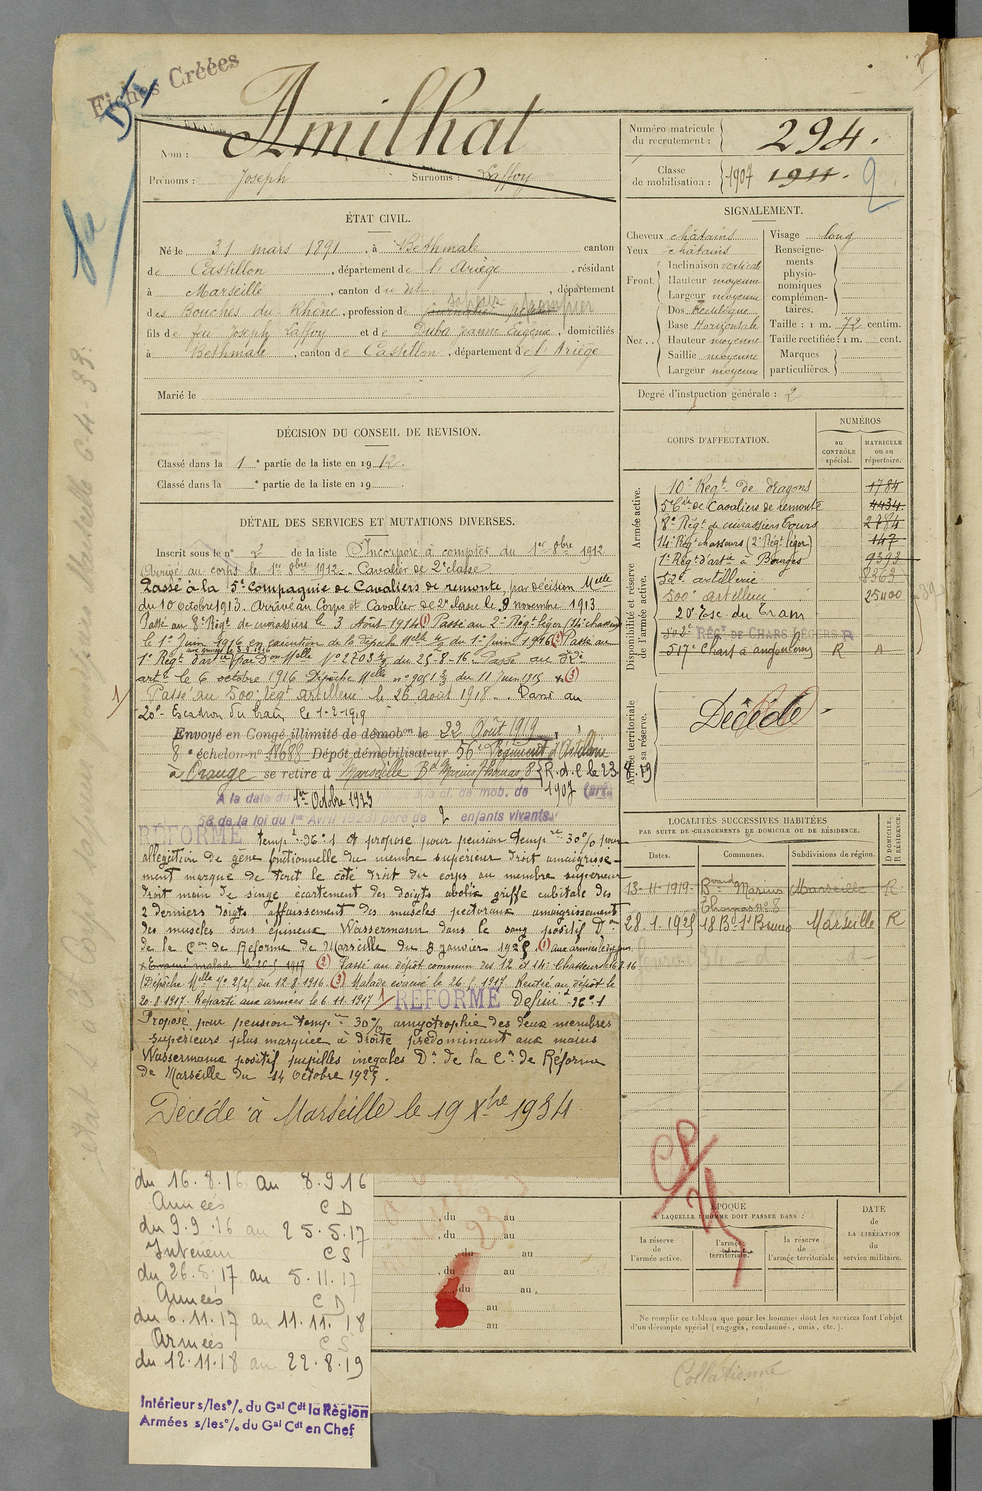 Fiches Créées
Nom : Amilhat
Prénoms : Joseph Surnoms : Laffoy
Numéro matricule du recrutement : 294.
Classe de mobilisation : 1907 1911. 2
ÉTAT CIVIL.
Né le 31 mars 1891, à Bethmale canton
de Castillon, département de l'Ariège, résidant
à Marseille, canton du dit, département
des Bouches du Rhône, profession de journalier sapeur pompier
fils de feu Joseph Laffoy et de Duba Jeanne Eugénie, domiciliés
à Bethmale, canton de Castillon, département de l'Ariège
Marié le
SIGNALEMENT.
Cheveux châtains
Yeux châtains
Front. Inclinaison vertical
Hauteur moyenne
Largeur moyenne
Nez.. Dos Rectiligne
Base Horizontale
Hauteur moyenne
Saillie moyenne
Largeur moyenne
Visage long
Renseignements physionomiques complémentaires.
Taille : 1 m. 72 centim.
Taille rectifiée : 1 m. cent.
Marques particulières.
Degré d'instruction générale : 2
DÉCISION DU CONSEIL DE REVISION.
Classé dans la 1e partie de la liste en 1912.
Classé dans la e partie de la liste en 19
DÉTAIL DES SERVICES ET MUTATIONS DIVERSES.
Inscrit sous le n° 2 de la liste Incorporé à compter du 1er 8bre 1912
Arrivé au corps le 1er 8bre 1912. Cavalier de 2e classe.
Passé à la 5e Compagnie de Cavaliers de remonte, par décision Mlle
du 10 octobre 1913. Arrivé au Corps et Cavalier de 2e classe le 9 novembre 1913.
Passé au 8e Régt de cuirassiers le 3 Août 1914 (1) Passé au 2e Régt léger (14e chasseurs)
le 1er Juin 1916 en exécution de la dépêch Mlle du 1er Juin 1916 (2) Passé au
1er Régt d'artie par Don Mlle N° 2203 du 25-8-16. Passé au 52e
artie le 6 octobre 1916 Dépêche Mlle du 11 Juin 1915 x (3)
Passé au 500e Régt artillerie le 26 Août 1918. Passé au
20e Escadron du train le 1-2-1919
Envoyé en Congé illimité de démobon le 22 Août 1919,
8e échelon n° 11688 Dépôt démobilisateur 56e Régiment d'Artillerie
à Orange se retire à Marseille Bd Marius Thomas 8 R.d.c le 23.8.19
A la date du 1er Octobre 1923 cl. de mob. de 1907 (art.
58 de la loi du 1er Avril 1923) père de 2 enfants vivants.
RÉFORMÉ tempre n° 1 et proposé pour pension tempre 30% pour
allégation de gêne fonctionnelle du membre supérieur droit amaigrisse-
ment marqué de tout le côté droit du corps au membre supérieur
droit main de singe écartement des doigts aboli griffe cubitale des
2 derniers doigts affaissement des muscles pectoraux amaigrissement
des muscles sous épineux Wassermann dans le sang positif Don
de la Con de Réforme de Marseille du 8 janvier 1925. (1) aux armées le
x Evacué malade le 25-5-1917 (2) Passé au dépôt commun des 12 et 14e Chasseurs le 8.16
(Dépêche Mlle n° 2525 du 12.8.1916. (3) Malade évacué le 26.5.1917. Rentré au dépôt le
20.8.1917. Reparti aux armées le 6.11.1917 RÉFORMÉ Définif n° 1
Proposé pour pension tempre 30% amyotrophie des deux membres
supérieurs plus marquée à droite prédominant aux mains
Wassermann positif pupilles inégales Don de la Con de Réforme
de Marseille du 14 octobre 1925.
Décédé à Marseille le 19 Xbre 1934.
du 16.8.16 au 8.9.16
Armées C D
du 9.9.16 au 25.5.17
Intérieur C S
du 26.5.17 au 5.11.17
Armées C D
du 6.11.17 au 11.11.18
Armées C S
du 12.11.18 au 22.8.19
Intérieur s/les % du Gal Cdt la Région
Armées s/les % du Gal Cdt en Chef
, du au
, du au
du au
, du au
du au
au
au
CORPS D'AFFECTATION.
NUMÉROS
au CONTRÔLE spécial.
MATRICULE ou au répertoire.
Armée active.
10e Régt de dragons 1784
5e Cie de Cavaliers de remonte 4434
8e Régt de cuirassiers Tours 2784
14e Régt chasseurs (2e Régt léger) 147
Disponibilité et réserve de l'armée active.
1er Régt d'artie à Bourges 9393
52e artillerie 8363
500e artillerie 25400
20e Esc. du Train
502e RÉGt DE CHARS LÉGERS R
517e Chars à angoulême R A
Armée territoriale et sa réserve.
Décédé
LOCALITÉS SUCCESSIVES HABITÉES
PAR SUITE DE CHANGEMENTS DE DOMICILE OU DE RÉSIDENCE.
Dates. Communes. Subdivisions de région. D DOMICILE, R RÉSIDENCE.
13-11-1919 Bvard Marius Thomas n° 8 Marseille R
28.1.1925 18 Bd St Bruno Marseille R
ÉPOQUE
À LAQUELLE L'HOMME DOIT PASSER DANS :
la réserve de l'armée active.
l'armée territoriale.
la réserve de l'armée territoriale.
DATE de LA LIBÉRATION du service militaire.
Ne remplir ce tableau que pour les hommes dont les services font l'objet
d'un décompte spécial (engagés, condamnés, omis, etc.).
Collationné